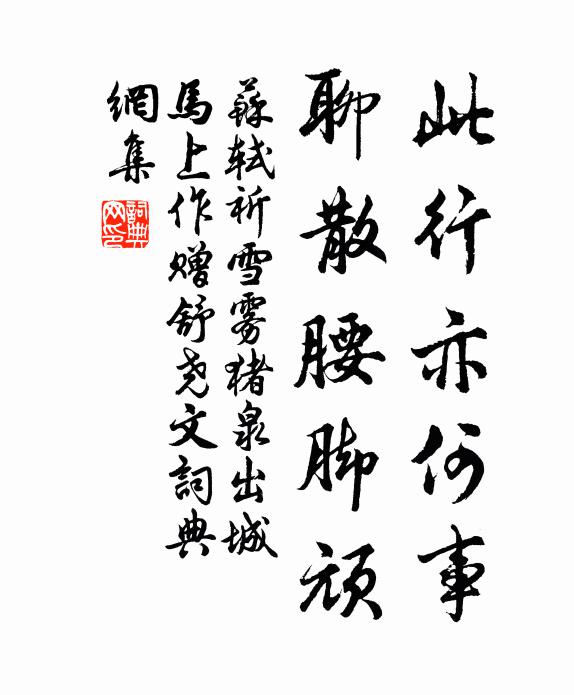 此行亦何事
聊散腰脚頑
蘇軾祈雪雾猪泉出城
馬上作赠舒尧文詞典
網集
詞典
网印